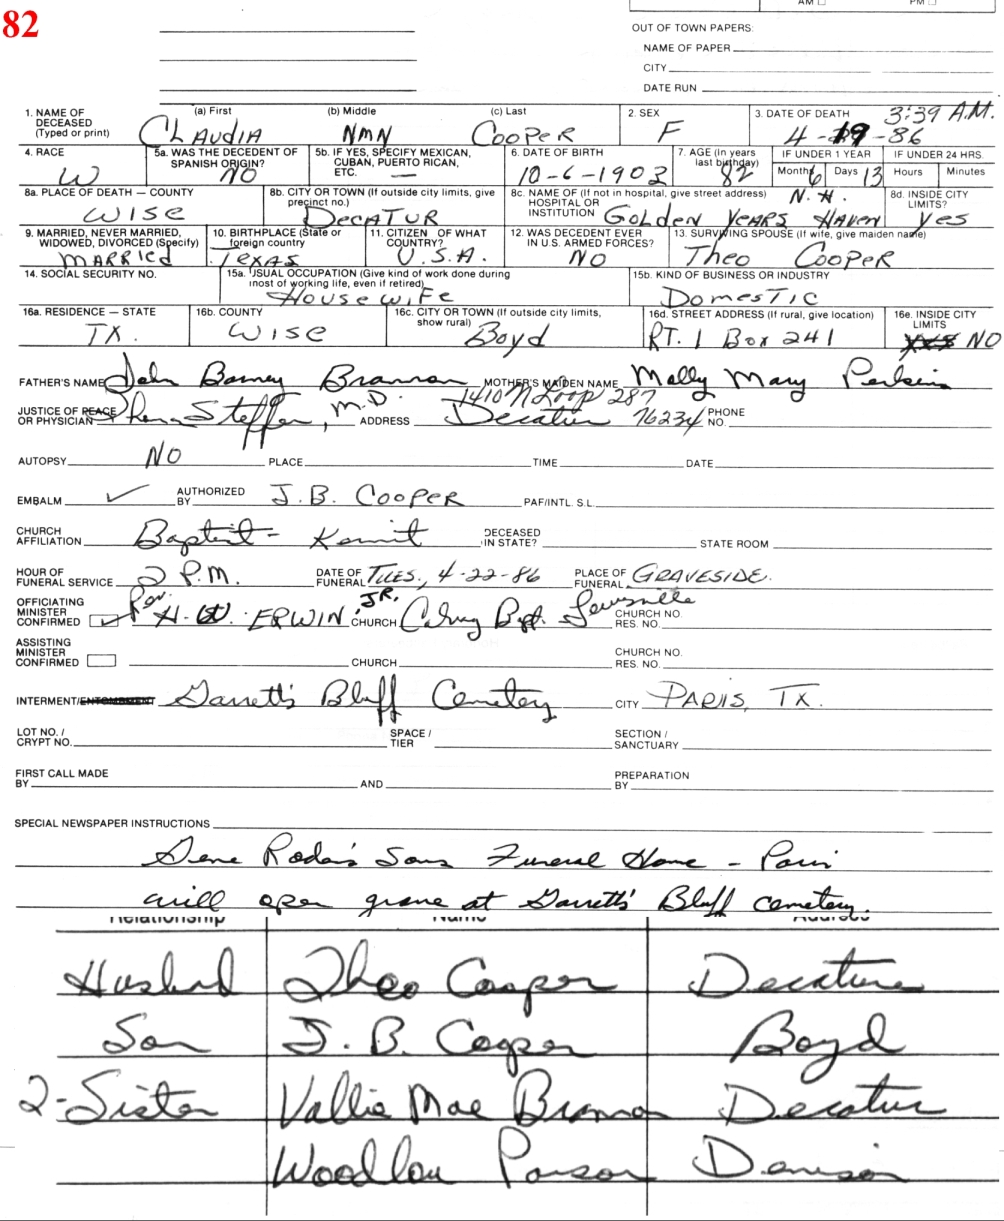 82
AM PM
OUT OF TOWN PAPERS:
NAME OF PAPER
CITY
DATE RUN
1. NAME OF DECEASED (Typed or print) (a) First (b) Middle (c) Last 2. SEX 3. DATE OF DEATH 3:39 A.M.
CLAUDIA NMN COOPER F 4-19-86
4. RACE 5a. WAS THE DECEDENT OF SPANISH ORIGIN? 5b. IF YES, SPECIFY MEXICAN, CUBAN, PUERTO RICAN, ETC. 6. DATE OF BIRTH 7. AGE (In years last birthday) IF UNDER 1 YEAR IF UNDER 24 HRS.
W NO — 10-6-1903 82 Months 6 Days 13 Hours Minutes
8a. PLACE OF DEATH — COUNTY 8b. CITY OR TOWN (If outside city limits, give precinct no.) 8c. NAME OF (If not in hospital, give street address) HOSPITAL OR INSTITUTION N.H. 8d. INSIDE CITY LIMITS?
WISE DECATUR Golden Years Haven Yes
9. MARRIED, NEVER MARRIED, WIDOWED, DIVORCED (Specify) 10. BIRTHPLACE (State or foreign country 11. CITIZEN OF WHAT COUNTRY? 12. WAS DECEDENT EVER IN U.S. ARMED FORCES? 13. SURVIVING SPOUSE (If wife, give maiden name)
MARRIED TEXAS U.S.A. NO Theo Cooper
14. SOCIAL SECURITY NO. 15a. USUAL OCCUPATION (Give kind of work done during most of working life, even if retired) 15b. KIND OF BUSINESS OR INDUSTRY
Housewife Domestic
16a. RESIDENCE — STATE 16b. COUNTY 16c. CITY OR TOWN (If outside city limits, show rural) 16d. STREET ADDRESS (If rural, give location) 16e. INSIDE CITY LIMITS
TX. WISE Boyd RT. 1 Box 241 NO
FATHER'S NAME John Barney Brannon MOTHER'S MAIDEN NAME Molly Mary Perkins
1410 N Loop 287
JUSTICE OF PEACE OR PHYSICIAN M.D. ADDRESS Decatur 76234 PHONE NO.
AUTOPSY NO PLACE TIME DATE
EMBALM ✓ AUTHORIZED BY J.B. Cooper PAF/INTL. S.L.
CHURCH AFFILIATION Baptist - DECEASED IN STATE? STATE ROOM
HOUR OF FUNERAL SERVICE 2 P.M. DATE OF FUNERAL TUES., 4-22-86 PLACE OF FUNERAL GRAVESIDE.
OFFICIATING MINISTER CONFIRMED ✓ Rev. H. W. ERWIN, JR. CHURCH Calvary Bapt. Lewisville CHURCH NO. RES. NO.
ASSISTING MINISTER CONFIRMED CHURCH CHURCH NO. RES. NO.
INTERMENT/ENTOMBMENT Garrett's Bluff Cemetery CITY PARIS, TX.
LOT NO. / CRYPT NO. SPACE / TIER SECTION / SANCTUARY
FIRST CALL MADE BY AND PREPARATION BY
SPECIAL NEWSPAPER INSTRUCTIONS
Gene Roden's Sons Funeral Home - Paris
will open grave at Garrett's Bluff cemetery.
Relationship Name Address
Husband Theo Cooper Decatur
Son J. B. Cooper Boyd
2-Sister Vallie Mae Brannon Decatur
Woodlou Parson Denison